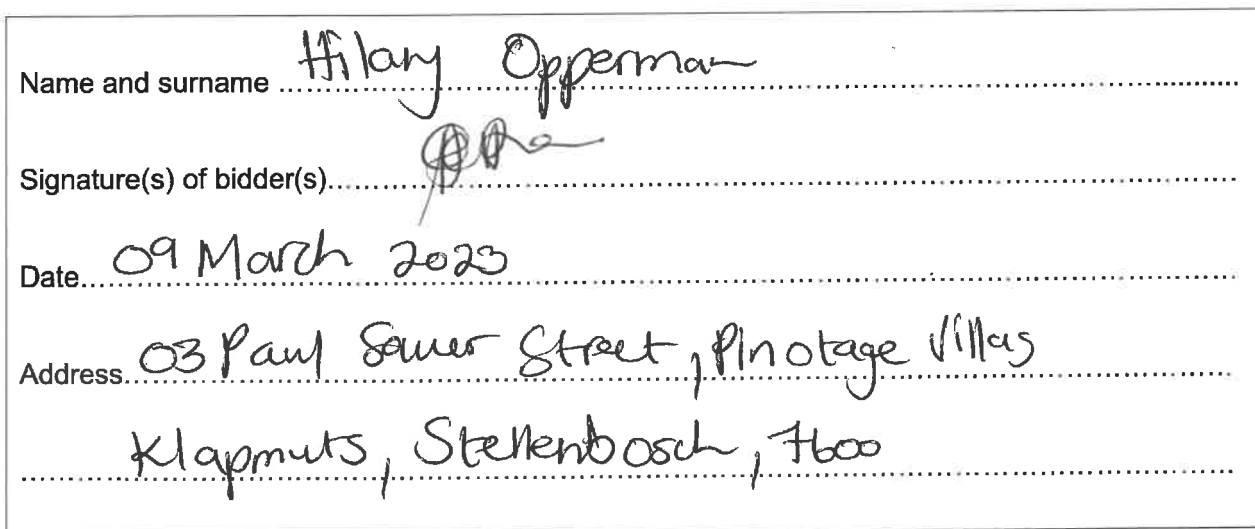 Name and surname Hilary Opperman
Signature(s) of bidder(s)
Date 09 March 2023
Address 03 Paul Sauer Street, Pinotage Villas
Klapmuts, Stellenbosch, 7600